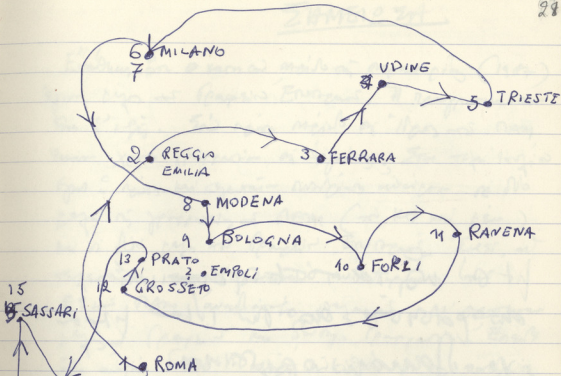 28
6 MILANO
7
UDINE
4
5 TRIESTE
2 REGGIO
EMILIA
3 FERRARA
8 MODENA
9 BOLOGNA
11 RAVENA
10 FORLI
13 PRATO
? EMPOLI
12 GROSSETO
15
SASSARI
1 ROMA